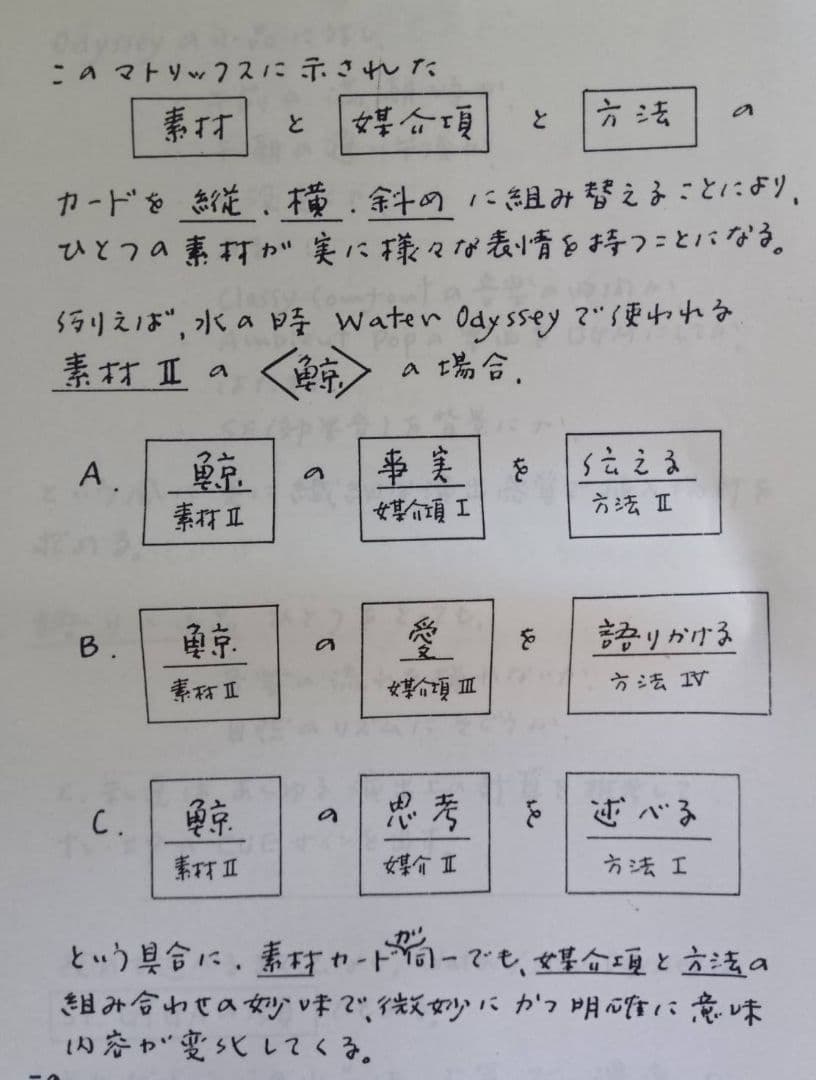 このマトリックスに示された
素材 と 媒介項 と 方法 の
カードを 縦、横、斜め に組み替えることにより、
ひとつの素材が実に様々な表情を持つことになる。
例えば、水の時 Water Odysseyで使われる
素材 II の 〈鯨〉 の場合、
A. 鯨 の 事実 を 伝える
素材 II 媒介項 I 方法 II
B. 鯨 の 愛 を 語りかける
素材 II 媒介項 III 方法 IV
C. 鯨 の 思考 を 述べる
素材 II 媒介 II 方法 I
という具合に、素材カードが同一でも、媒介項と方法の
組み合わせの妙味で、微妙にかつ明確に意味
内容が変化してくる。